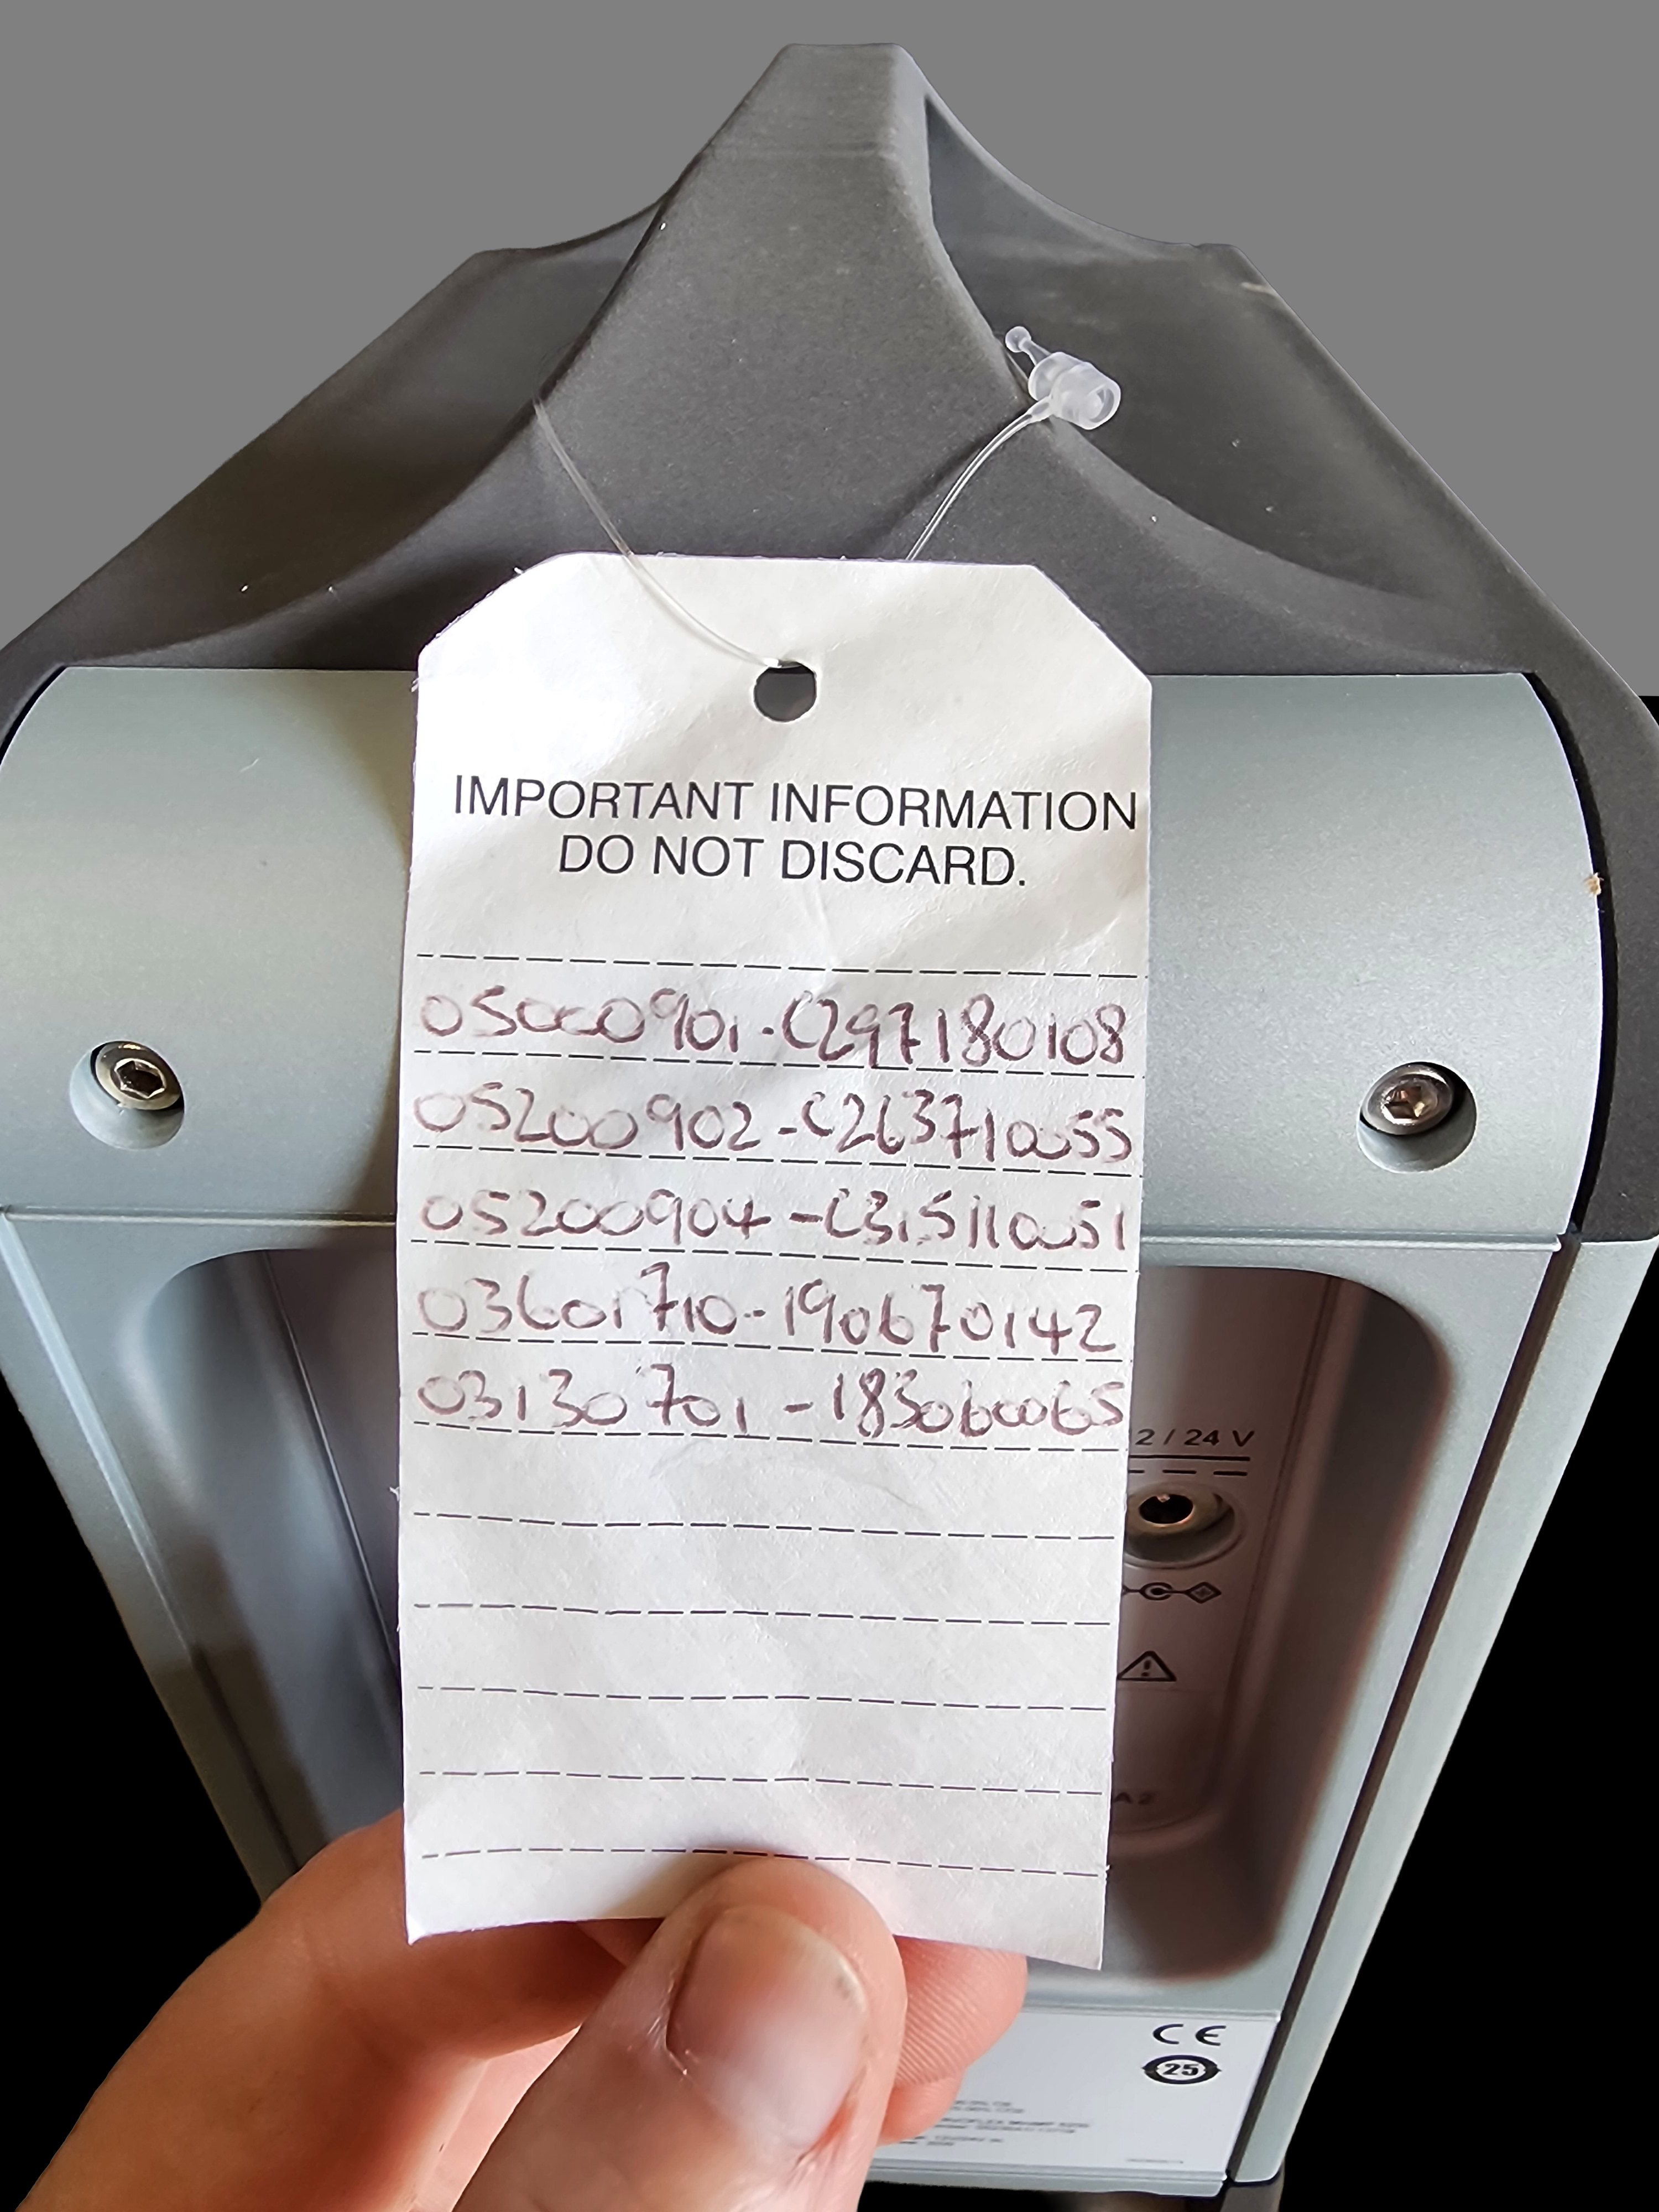 IMPORTANT INFORMATION
DO NOT DISCARD.
05000901-C297180108
05200902-C263710055
05200904-C315110051
03601710-190670142
03130701-183060065
2/24 V
A2
CE
25